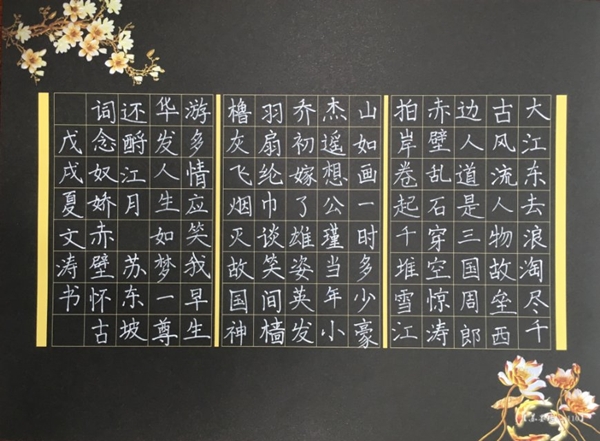 大江东去浪淘尽千
古风流人物故垒西
边人道是三国周郎
赤壁乱石穿空惊涛
拍岸卷起千堆雪江
山如画一时多少豪
杰遥想公瑾当年小
乔初嫁了雄姿英发
羽扇纶巾谈笑间樯
橹灰飞烟灭故国神
游多情应笑我早生
华发人生如梦一尊
还酹江月 苏东坡
词念奴娇赤壁怀古
戊戌夏文涛书